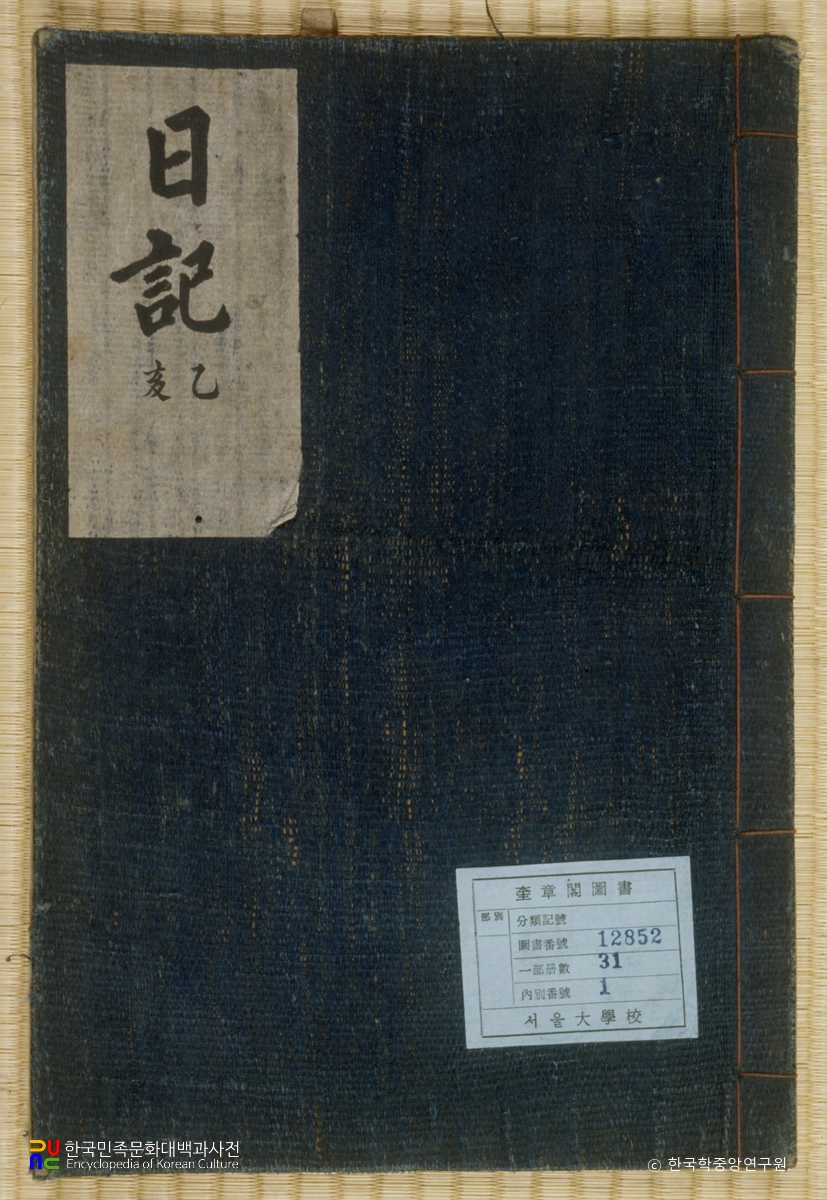 日記
乙亥
奎章閣圖書
部別
分類記號
圖書番號 12852
一部册數 31
內別番號 1
서울大學校
한국민족문화대백과사전
Encyclopedia of Korean Culture
© 한국학중앙연구원